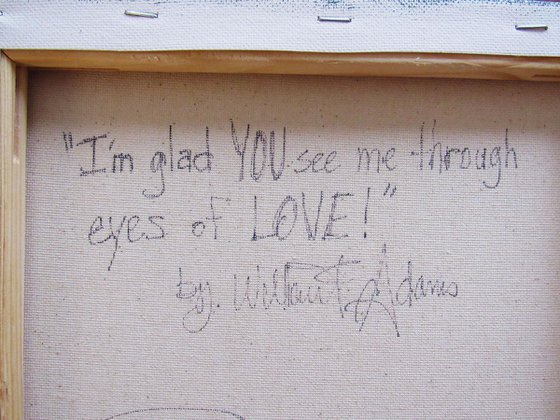 "I'm glad YOU see me through
eyes of LOVE!"
by. William F. Adams